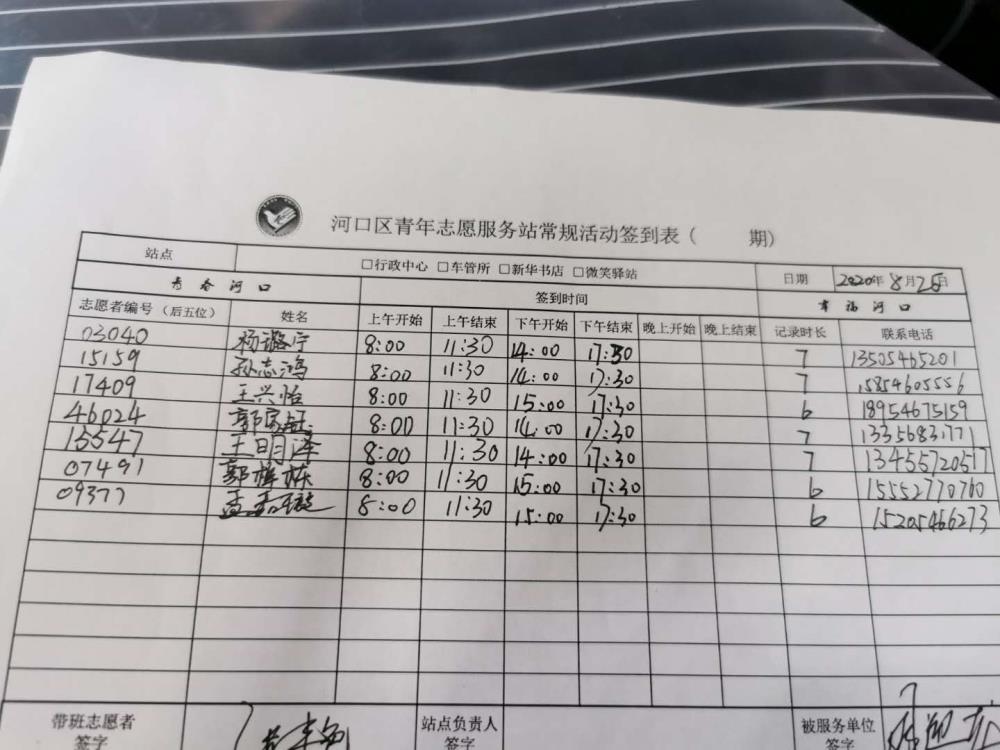 河口区青年志愿服务站常规活动签到表（ 期）
站点 □行政中心 □车管所 □新华书店 □微笑驿站 日期 2020年8月25日
青春河口 签到时间 幸福河口
志愿者编号（后五位） 姓名 上午开始 上午结束 下午开始 下午结束 晚上开始 晚上结束 记录时长 联系电话
03040 杨璐宁 8:00 11:30 14:00 17:30 7 13505465201
15159 孙志鸿 8:00 11:30 14:00 17:30 7 15854605556
17409 王兴怡 8:00 11:30 15:00 17:30 6 18954675159
46024 郭家钰 8:00 11:30 14:00 17:30 7 13356831771
15547 王明泽 8:00 11:30 14:00 17:30 7 13455720517
07491 郭梓栋 8:00 11:30 15:00 17:30 6 15552770760
09377 孟 8:00 11:30 15:00 17:30 6 15205466273
带班志愿者 站点负责人 被服务单位
签字 签字 签字